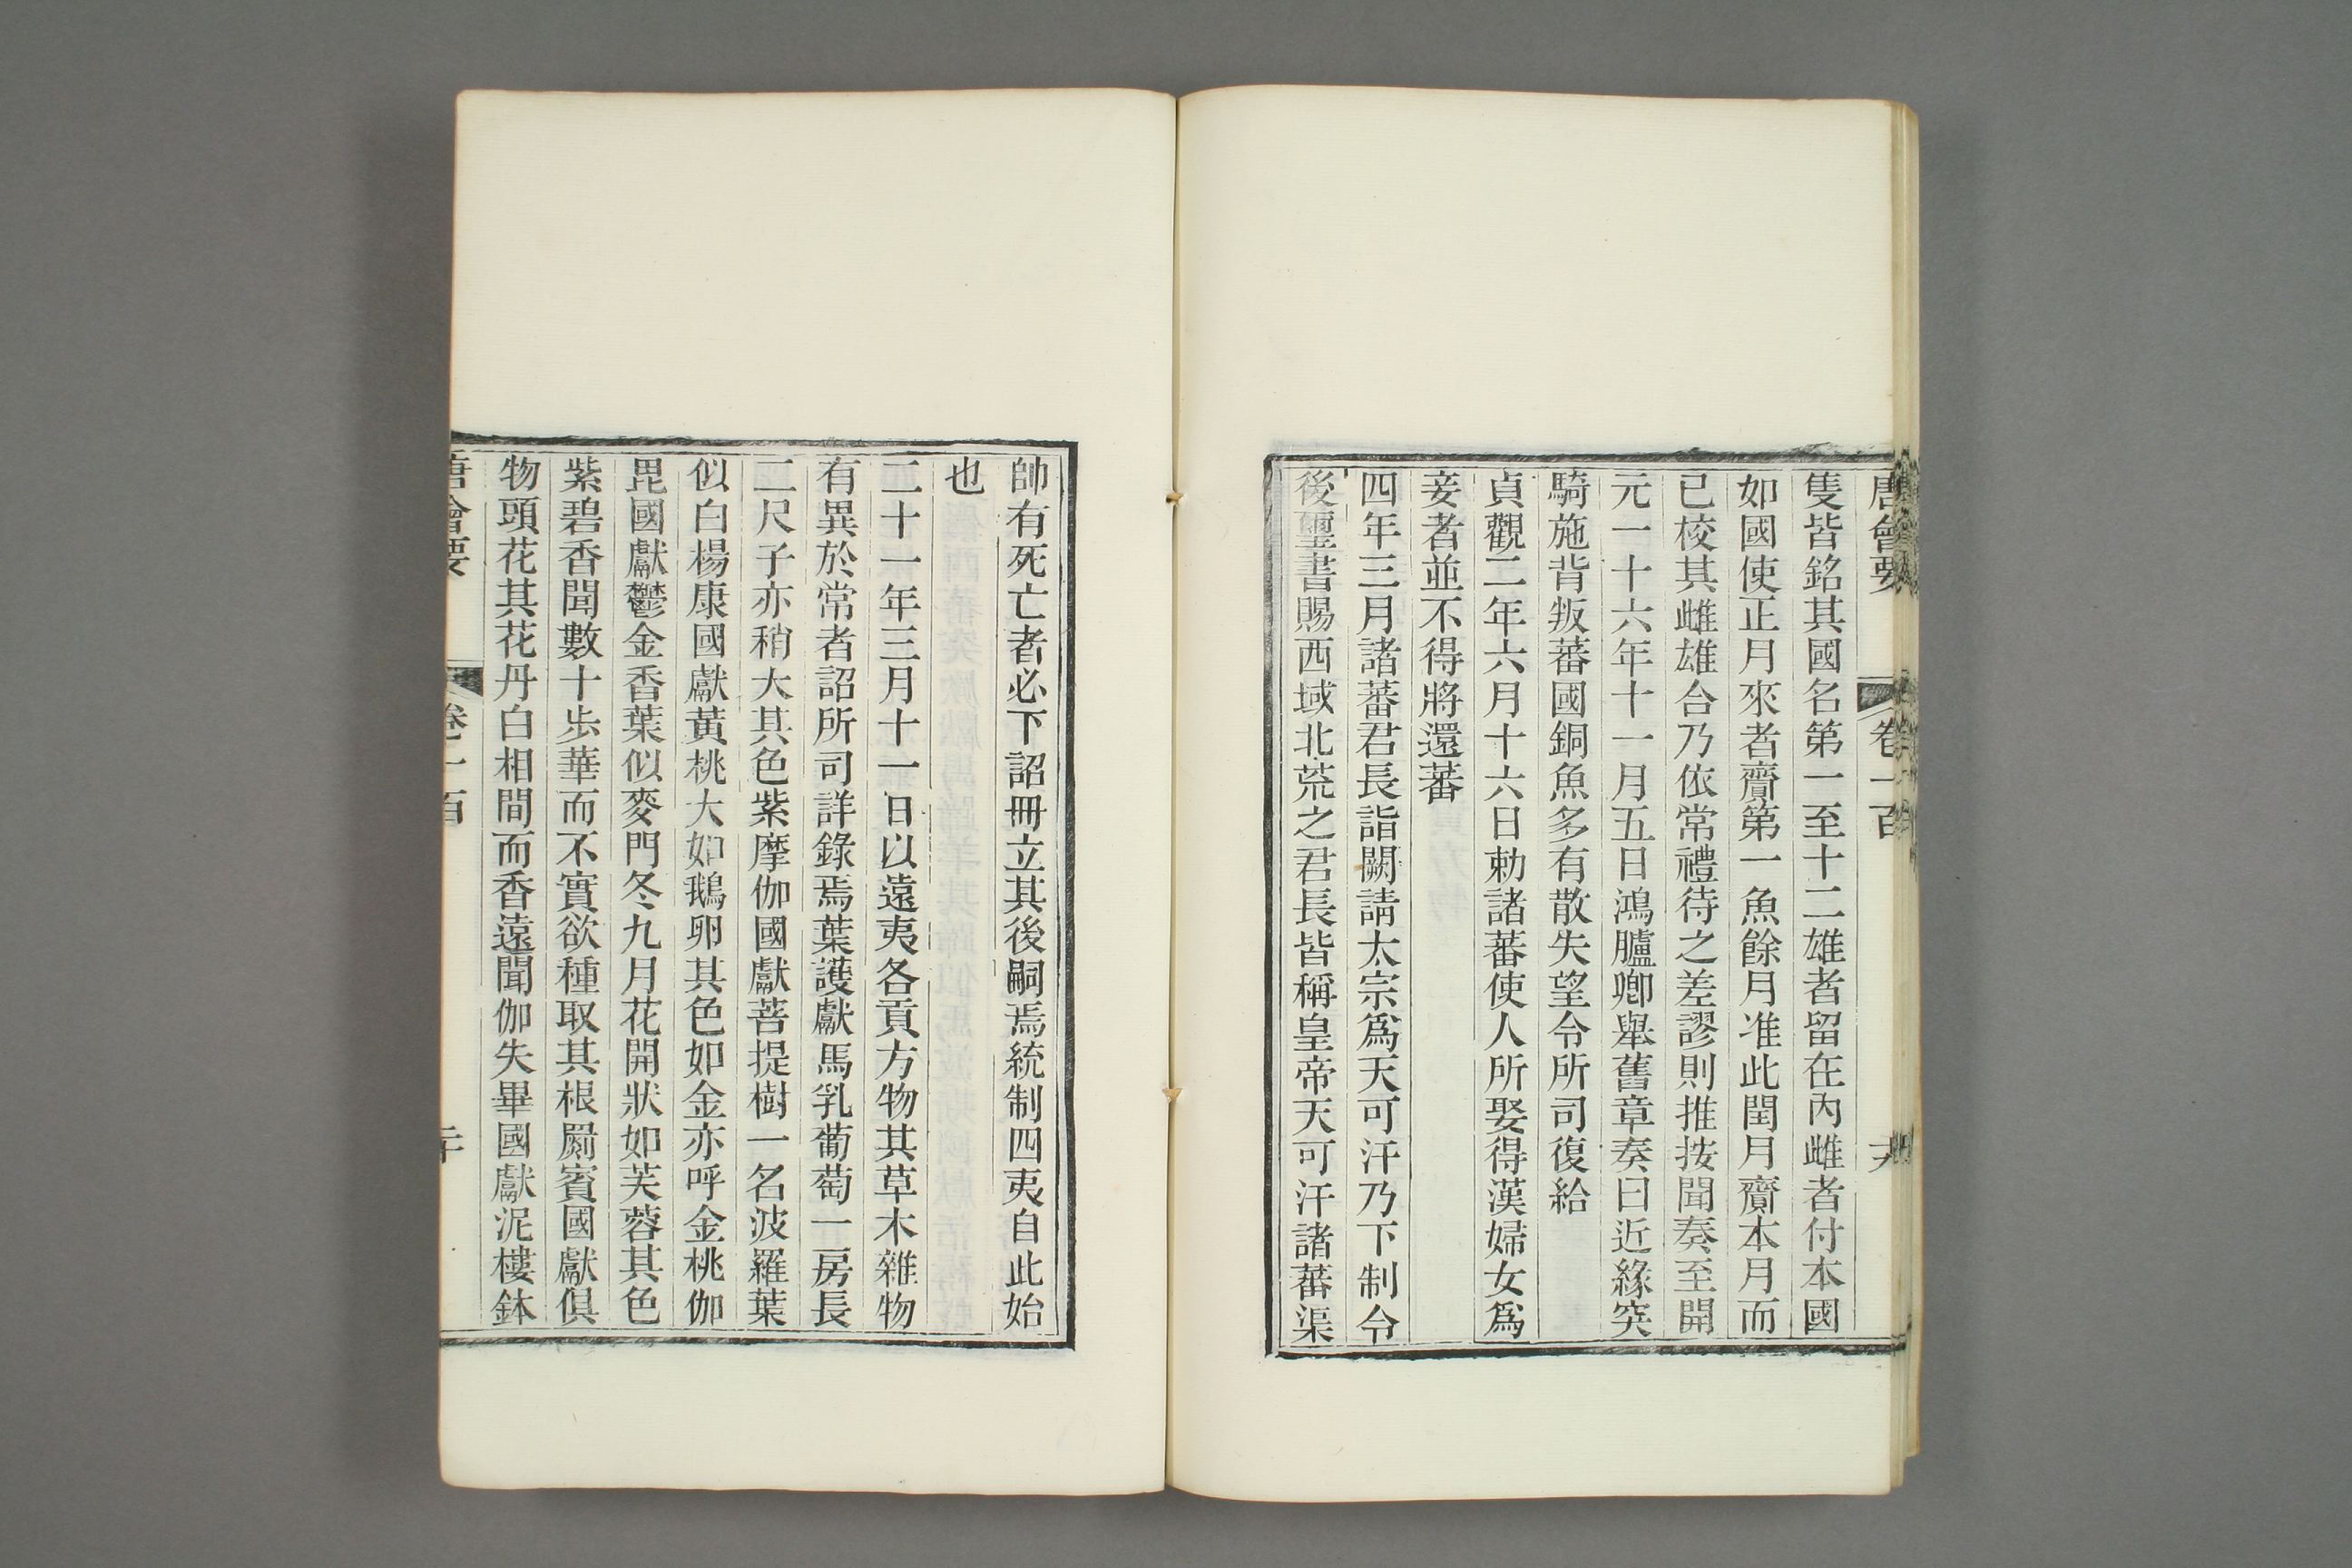 唐會要 卷一百
隻皆銘其國名第一至十二雄者留在內雌者付本國
如國使正月來者齎第一魚餘月准此閏月齎本月而
已校其雌雄合乃依常禮待之差謬則推按聞奏至開
元一十六年十一月五日鴻臚卿舉舊章奏曰近緣突
騎施背叛蕃國銅魚多有散失望令所司復給
貞觀二年六月十六日勅諸蕃使人所娶得漢婦女爲
妾者並不得將還蕃
四年三月諸蕃君長詣闕請太宗爲天可汗乃下制令
後璽書賜西域北荒之君長皆稱皇帝天可汗諸蕃渠
帥有死亡者必下詔冊立其後嗣焉統制四夷自此始
也
二十一年三月十一日以遠夷各貢方物其草木雜物
有異於常者詔所司詳錄焉葉護獻馬乳葡萄一房長
二尺子亦稍大其色紫摩伽國獻菩提樹一名波羅葉
似白楊康國獻黃桃大如鵝卵其色如金亦呼金桃伽
毘國獻鬱金香葉似麥門冬九月花開狀如芙蓉其色
紫碧香聞數十步華而不實欲種取其根罽賓國獻俱
物頭花其花丹白相間而香遠聞伽失畢國獻泥樓鉢
唐會要 卷一百 二十